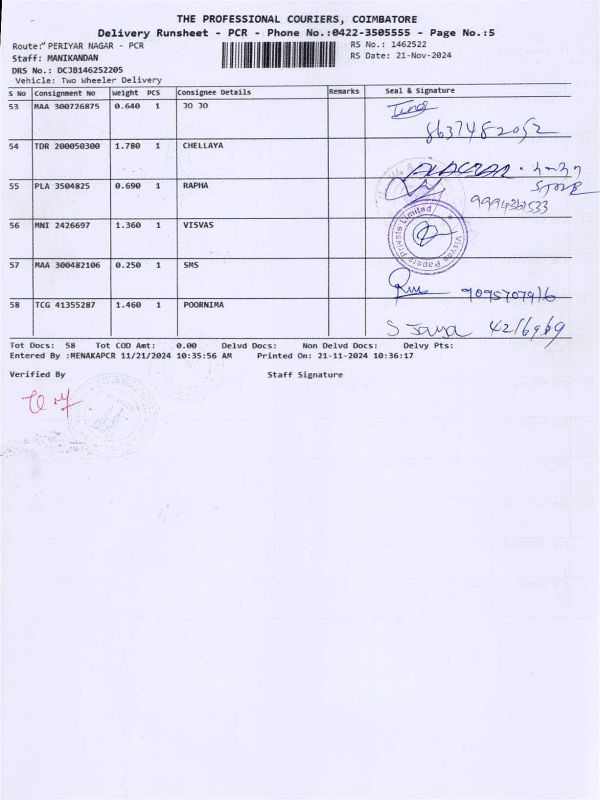 THE PROFESSIONAL COURIERS, COIMBATORE
Delivery Runsheet - PCR - Phone No.:0422-3505555 - Page No.:5
Route: PERIYAR NAGAR - PCR
RS No.: 1462522
Staff: MANIKANDAN
RS Date: 21-Nov-2024
DRS No.: DCJB146252205
Vehicle: Two Wheeler Delivery
S No Consignment No Weight PCS Consignee Details Remarks Seal & Signature
53 MAA 300726875 0.640 1 JO JO
8637482052
54 TDR 200050300 1.780 1 CHELLAYA
55 PLA 3504825 0.690 1 RAPHA
STORE
56 MNI 2426697 1.360 1 VISVAS
Visvas Papers Private Limited
57 MAA 300482106 0.250 1 SMS
9095707916
58 TCG 41355287 1.460 1 POORNIMA
S Jaya 4216969
Tot Docs: 58 Tot COD Amt: 0.00 Delvd Docs: Non Delvd Docs: Delvy Pts:
Entered By :MENAKAPCR 11/21/2024 10:35:56 AM Printed On: 21-11-2024 10:36:17
Verified By Staff Signature